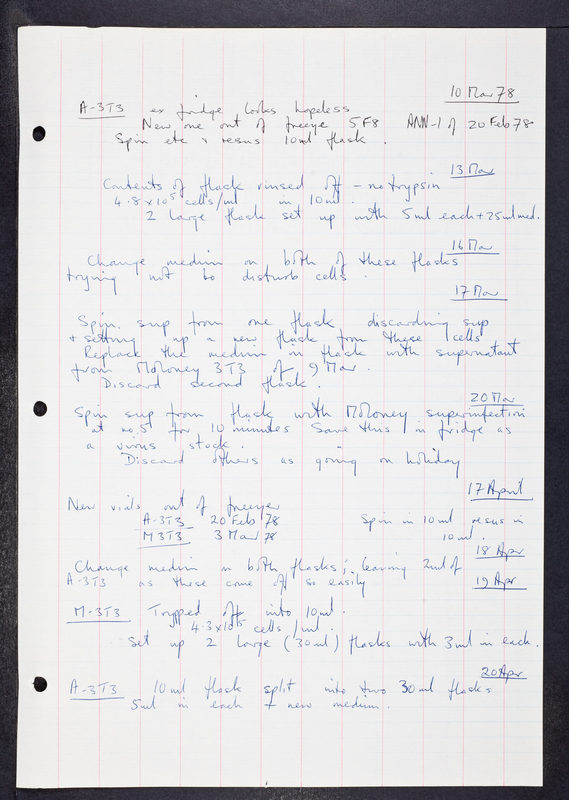 10 Mar 78
A-3T3 ex fridge looks hopeless
New one out of freeze 5F8 ANN-1 of 20 Feb 78
Spin etc + resus 10ml flask.
13 Mar
Contents of flask rinsed off – no trypsin
4.8 x 10⁵ cells/ml in 10ml.
2 large flask set up with 5ml each + 25ml med.
16 Mar
Change medium on both of these flasks
trying not to disturb cells.
17 Mar
Spin sup from one flask discarding sup
+ setting up a new flask from these cells
Replace the medium in flask with supernatant
from Moloney 3T3 of 9 Mar.
Discard second flask.
20 Mar
Spin sup from flask with Moloney superinfection
at no.5 for 10 minutes Save this in fridge as
a virus stock.
Discard others as going on holiday
17 April
New vials out of freezer
A-3T3 20 Feb 78 Spin in 10ml resus in
M3T3 3 Mar 78 10ml.
18 Apr
Change medium in both flasks; leaving 2ml of
A-3T3 as these come off so easily
19 Apr
M-3T3 Trypped off into 10ml.
4.3x10⁵ cells/ml.
Set up 2 large (30ml) flasks with 3ml in each.
20 Apr
A-3T3 10ml flask split into two 30ml flasks
5ml in each + new medium.